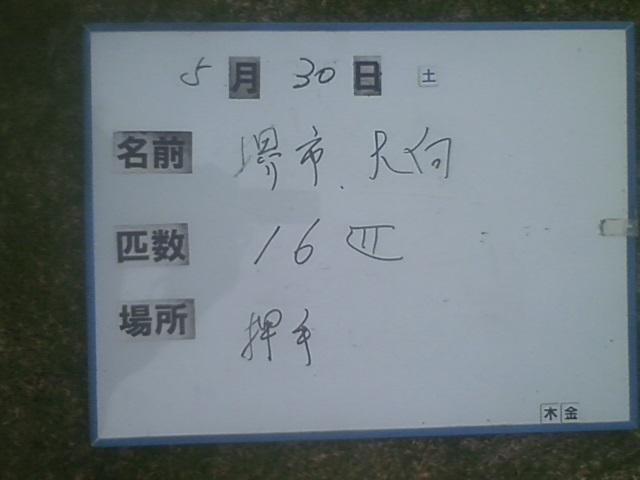 5月30日 土
名前 堺市、大向
匹数 16匹
場所 押手
木 金